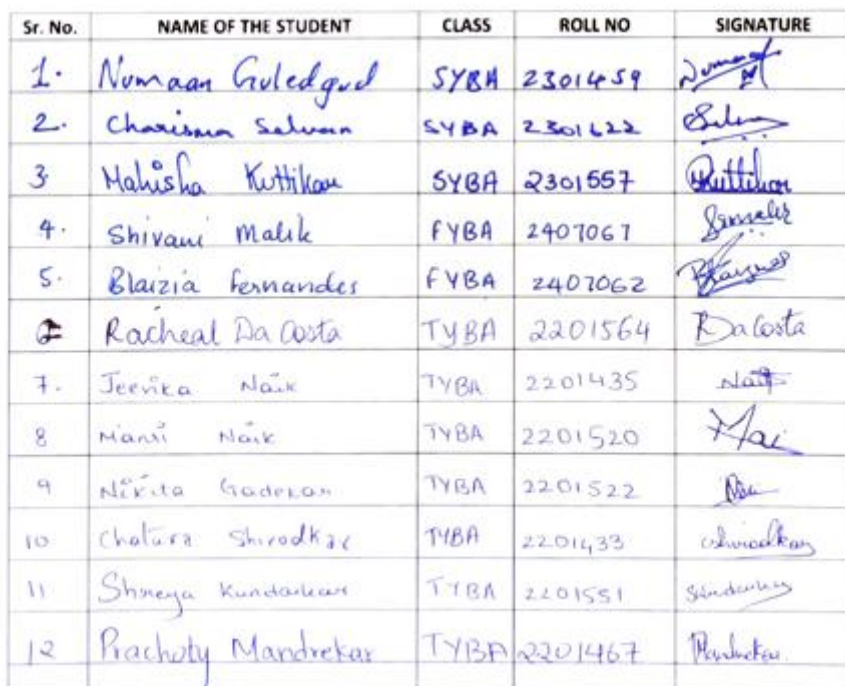 Sr. No. NAME OF THE STUDENT CLASS ROLL NO SIGNATURE
1. Numaan Guledgud SYBA 2301459
2. Charisma Salvan SYBA 2301622
3 Mahisha Kuttikan SYBA 2301557 Kuttikar
4. Shivani Malik FYBA 2407067
5. Blaizia Fernandes FYBA 2407062
Racheal Da Costa TYBA 2201564 Da Costa
7. Jeevika Naik TYBA 2201435 Naik
8 Mansi Naik TYBA 2201520 Nai
9 Nikita Gadekar TYBA 2201522
10 Chatura Shirodkar TYBA 2201433 Shirodkar
11 Shreya Kundaikar TYBA 2201551
12 Prachoty Mandrekar TYBA 2201467 Mandrekar